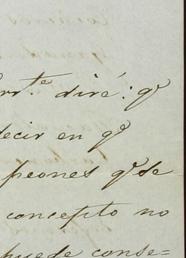 rr.te diré: qe
decir en qe
peones qe se
concepto no
puede conse=